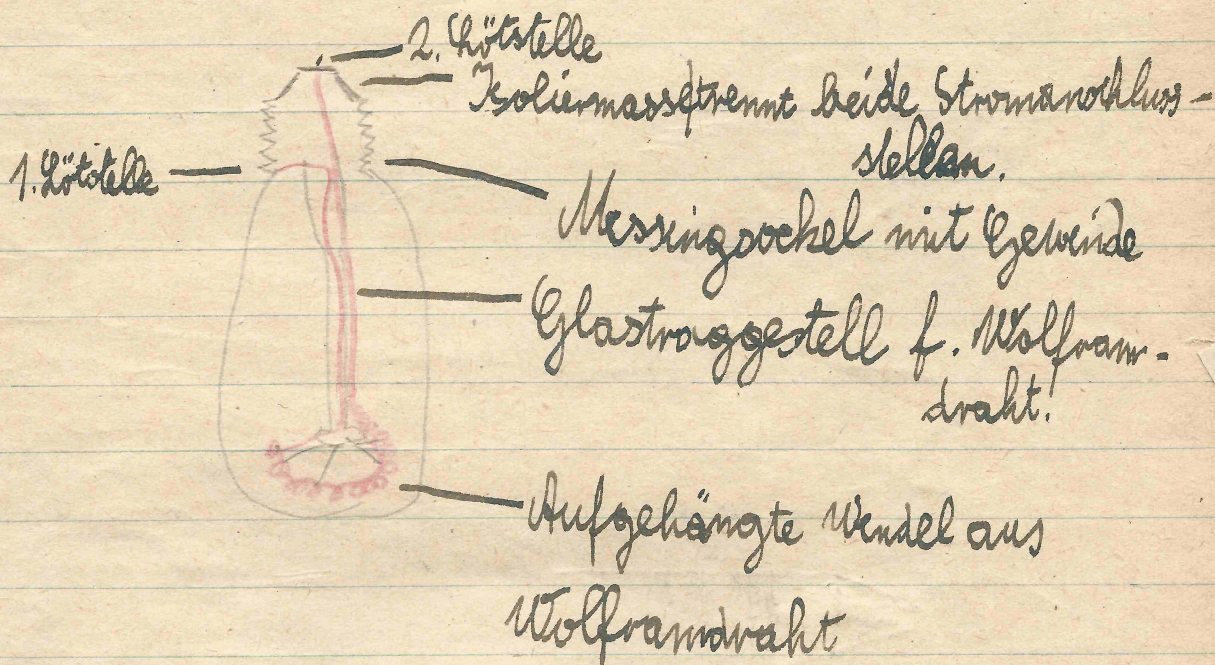 2. Lötstelle
Isoliermasse trennt beide Stromanschluss-
stellen.
1. Lötstelle
Messingsockel mit Gewinde
Glastraggestell f. Wolfram-
draht!
Aufgehängte Wendel aus
Wolframdraht